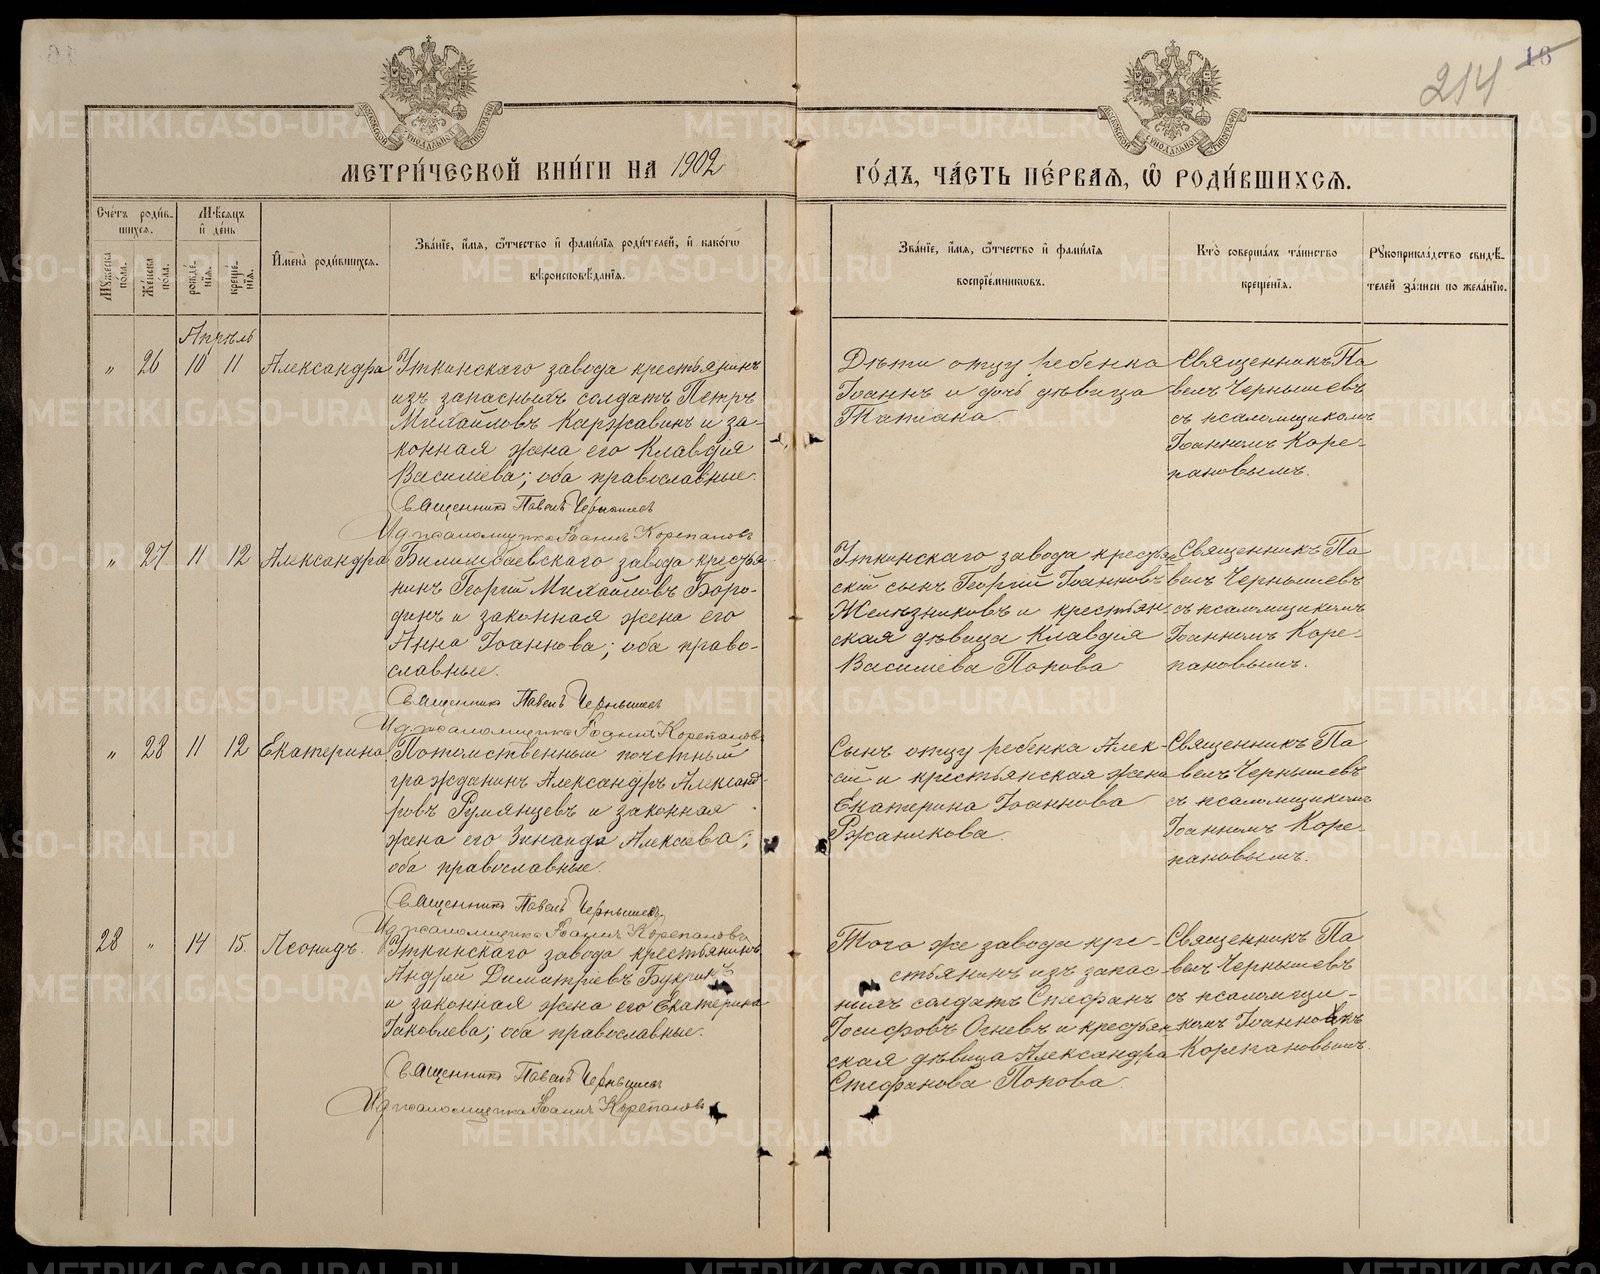 214 16
МЕТРИ́ЧЕСКОЙ КНИ́ГИ НА 1902
ГО́ДЪ, ЧА́СТЬ ПЕ́РВАЯ, Ѡ҆ РОДИ́ВШИХСѦ.
Сче́тъ роди́в-
шихсѧ.
Мꙋ́жеска
по́ла.
Же́нска
по́ла.
Мѣ́сѧцъ
и҆ де́нь
рожде́-
нїѧ.
креще́-
нїѧ.
И҆мена̀ роди́вшихсѧ.
Зва́нїе, и҆́мѧ, ѻ҆́тчество и҆ фами́лїѧ роди́телей, и҆ како́гѡ
вѣроисповѣ́данїѧ.
Зва́нїе, и҆́мѧ, ѻ҆́тчество и҆ фами́лїѧ
воспрїе́мникѡвъ.
Кто̀ соверша́лъ та́инство
креще́нїѧ.
Рꙋкоприкла́дство свидѣ́-
телей за́писи по жела́нїю.
Апрѣль
„ 26 10 11 Александра
Уткинскаго завода крестьянинъ
изъ запасныхъ солдатъ Петръ
Михайловъ Каржавинъ и за-
конная жена его Клавдія
Василіева; оба православные.
Священникъ Павелъ Чернышевъ
И д псаломщика Іоаннъ Корепановъ
Дѣти отцу ребенка
Іоаннъ и дочь дѣвица
Татіана
Священникъ Па-
велъ Чернышевъ
съ псаломщикомъ
Іоанномъ Коре-
пановымъ.
„ 27 11 12 Александра
Билимбаевскаго завода крестья-
нинъ Георгій Михайловъ Боро-
динъ и законная жена его
Анна Іоаннова; оба право-
славные.
Священникъ Павелъ Чернышевъ
И д псаломщика Іоаннъ Корепановъ
Уткинскаго завода крестьян-
скій сынъ Георгій Іоанновъ
Желѣзниковъ и крестьян-
ская дѣвица Клавдія
Василіева Попова
Священникъ Па-
велъ Чернышевъ
съ псаломщикомъ
Іоанномъ Коре-
пановымъ.
„ 28 11 12 Екатерина
Потомственный почетный
гражданинъ Александръ Александ-
ровъ Румянцевъ и законная
жена его Зинаида Алексѣева;
оба православные.
Священникъ Павелъ Чернышевъ
И д псаломщика Іоаннъ Корепановъ
Сынъ отцу ребенка Алек-
сій и крестьянская жена
Екатерина Іоаннова
Ржаникова
Священникъ Па-
велъ Чернышевъ
съ псаломщикомъ
Іоанномъ Коре-
пановымъ.
28 „ 14 15. Леонидъ.
Уткинскаго завода крестьянинъ
Андрей Димитріевъ Букринъ
и законная жена его Екатерина
Іаковлева; оба православные.
Священникъ Павелъ Чернышевъ
И д псаломщика Іоаннъ Корепановъ
Того же завода кре-
стьянинъ изъ запас-
ныхъ солдатъ Стефанъ
Іосифовъ Огневъ и крестьян-
ская дѣвица Александра
Стефанова Попова.
Священникъ Па-
велъ Чернышевъ
съ псаломщи-
комъ Іоанномъ
Корепановымъ.
METRIKI.GASO-URAL.RU